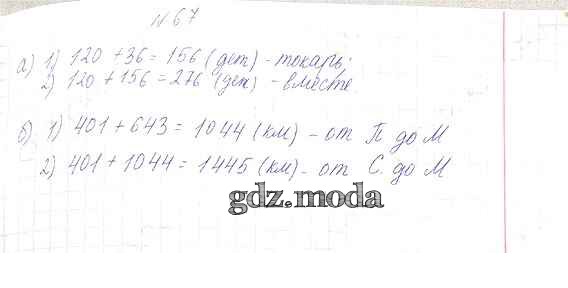 №67
а) 1) 120 + 36 = 156 (дет) - токарь;
2) 120 + 156 = 276 (дет) - вместе.
б) 1) 401 + 643 = 1044 (км) - от П до М
2) 401 + 1044 = 1445 (км) - от С. до М
gdz.moda